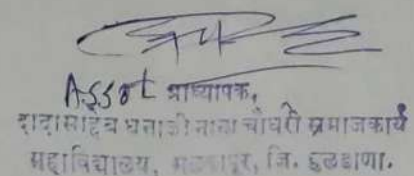 Asst प्राध्यापक,
दादासाहेब धनाजी नाना चौधरी समाजकार्य
महाविद्यालय, मलकापूर, जि. बुलढाणा.